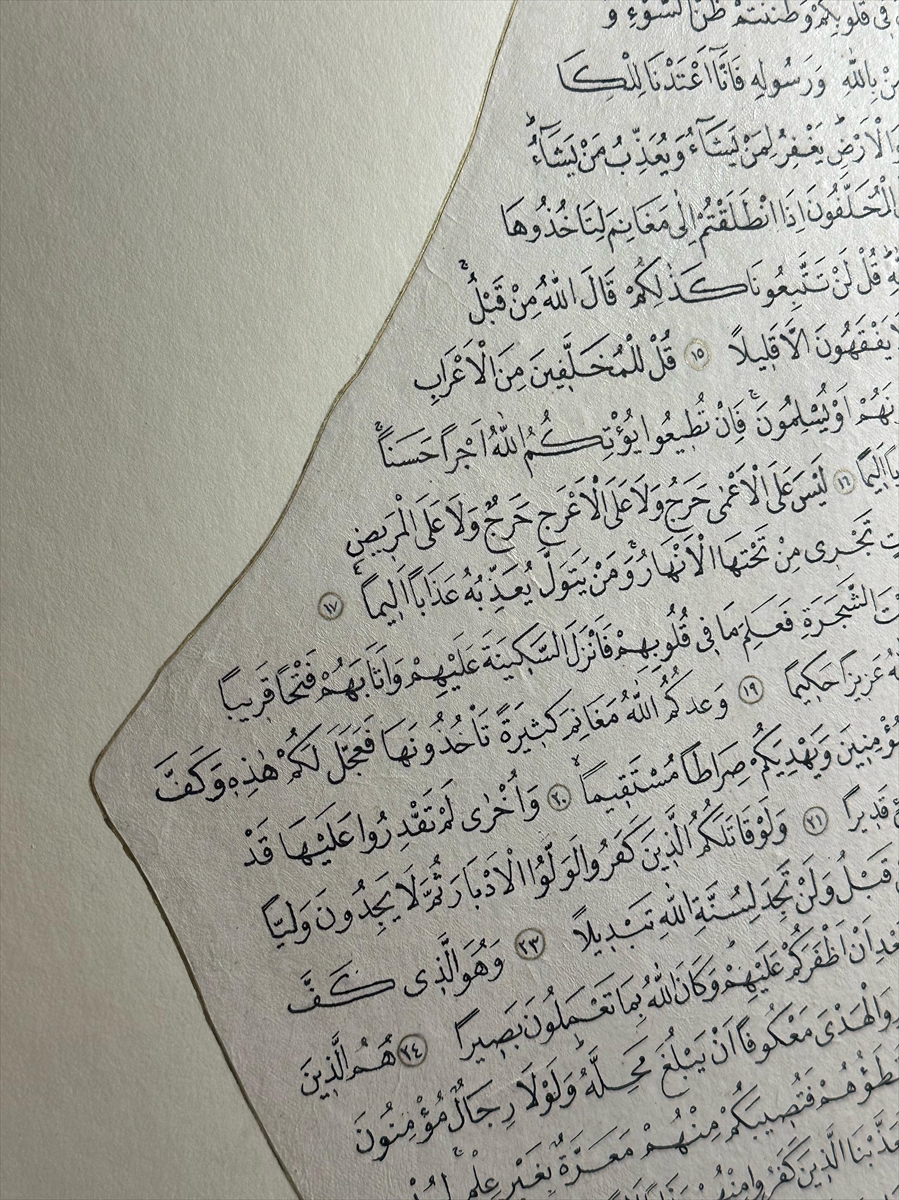 فى قُلُوبِكُمْ وَظَنَنْتُمْ ظَنَّ السَّوْءِ وَ
بِاللّٰهِ وَرَسُولِهِ فَاِنَّا اَعْتَدْنَا لِلْكَا
وَالْاَرْضِ يَغْفِرُ لِمَنْ يَشَاءُ وَيُعَذِّبُ مَنْ يَشَاءُ
الْمُخَلَّفُونَ اِذَا انْطَلَقْتُمْ اِلٰى مَغَانِمَ لِتَأْخُذُوهَا
قُلْ لَنْ تَتَّبِعُونَا كَذٰلِكُمْ قَالَ اللّٰهُ مِنْ قَبْلُ
يَفْقَهُونَ اِلَّا قَلِيلًا ١٥ قُلْ لِلْمُخَلَّفِينَ مِنَ الْاَعْرَابِ
نَهُمْ اَوْ يُسْلِمُونَ فَاِنْ تُطِيعُوا يُؤْتِكُمُ اللّٰهُ اَجْرًا حَسَنًا
اَلِيمًا ١٦ لَيْسَ عَلَى الْاَعْمٰى حَرَجٌ وَلَا عَلَى الْاَعْرَجِ حَرَجٌ وَلَا عَلَى الْمَرِيضِ
تَجْرِى مِنْ تَحْتِهَا الْاَنْهَارُ وَمَنْ يَتَوَلَّ يُعَذِّبْهُ عَذَابًا اَلِيمًا ١٧
الشَّجَرَةِ فَعَلِمَ مَا فِى قُلُوبِهِمْ فَاَنْزَلَ السَّكِينَةَ عَلَيْهِمْ وَاَثَابَهُمْ فَتْحًا قَرِيبًا
عَزِيزًا حَكِيمًا ١٩ وَعَدَكُمُ اللّٰهُ مَغَانِمَ كَثِيرَةً تَأْخُذُونَهَا فَعَجَّلَ لَكُمْ هٰذِهِ وَكَفَّ
وَيَهْدِيَكُمْ صِرَاطًا مُسْتَقِيمًا ٢٠ وَاُخْرٰى لَمْ تَقْدِرُوا عَلَيْهَا قَدْ
قَدِيرًا ٢١ وَلَوْ قَاتَلَكُمُ الَّذِينَ كَفَرُوا لَوَلَّوُا الْاَدْبَارَ ثُمَّ لَا يَجِدُونَ وَلِيًّا
قَبْلُ وَلَنْ تَجِدَ لِسُنَّةِ اللّٰهِ تَبْدِيلًا ٢٣ وَهُوَ الَّذِى كَفَّ
اَنْ اَظْفَرَكُمْ عَلَيْهِمْ وَكَانَ اللّٰهُ بِمَا تَعْمَلُونَ بَصِيرًا ٢٤ هُمُ الَّذِينَ
وَالْهَدْىَ مَعْكُوفًا اَنْ يَبْلُغَ مَحِلَّهُ وَلَوْلَا رِجَالٌ مُؤْمِنُونَ
فَتُصِيبَكُمْ مِنْهُمْ مَعَرَّةٌ بِغَيْرِ عِلْمٍ
الَّذِينَ كَفَرُوا مِنْهُمْ